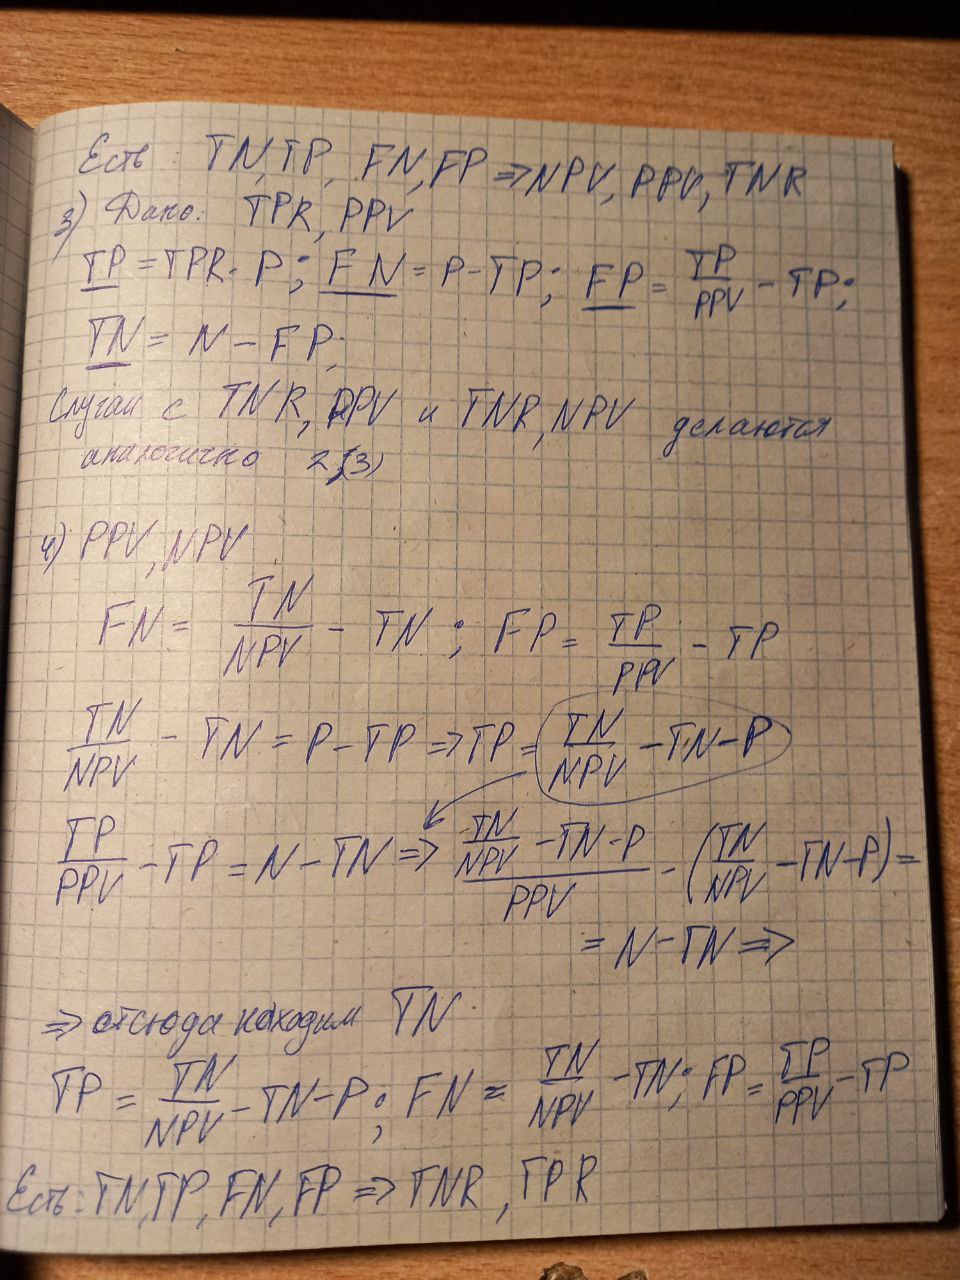 Есть: TN, TP, FN, FP ⇒ NPV, PPV, TNR
3) Дано: TPR, PPV
TP = TPR · P; FN = P - TP; FP = TP/PPV - TP;
TN = N - FP;
Случаи с TNR, PPV и TNR, NPV делаются
аналогично 2,3)
4) PPV, NPV
FN = TN/NPV - TN; FP = TP/PPV - TP
TN/NPV - TN = P - TP ⇒ TP = TN/NPV - TN - P
TP/PPV - TP = N - TN ⇒ (TN/NPV - TN - P)/PPV - (TN/NPV - TN - P) =
= N - TN ⇒
⇒ отсюда находим TN
TP = TN/NPV - TN - P; FN = TN/NPV - TN; FP = TP/PPV - TP
Есть: TN, TP, FN, FP ⇒ TNR, TPR